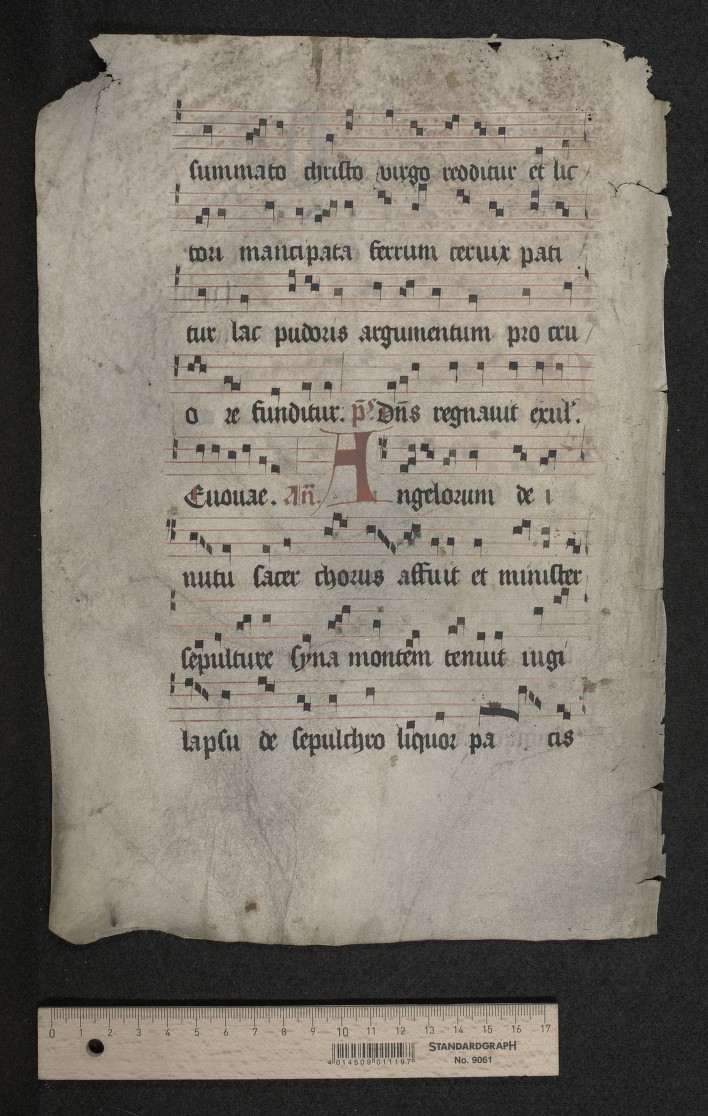 summato christo virgo redditur et lic
tori mancipata ferrum ceruix pati
tur lac pudoris argumentum pro cru
o re funditur. p̄s Dn̄s regnauit exul'.
Euouae. An̄. Angelorum de i
nutu sacer chorus affuit et minister
sepulture syna montem tenuit iugi
lapsu de sepulchro liquor pa cis
0 1 2 3 4 5 6 7 8 9 10 11 12 13 14 15 16 17
STANDARDGRAPH
No. 9061
4 014509 011197